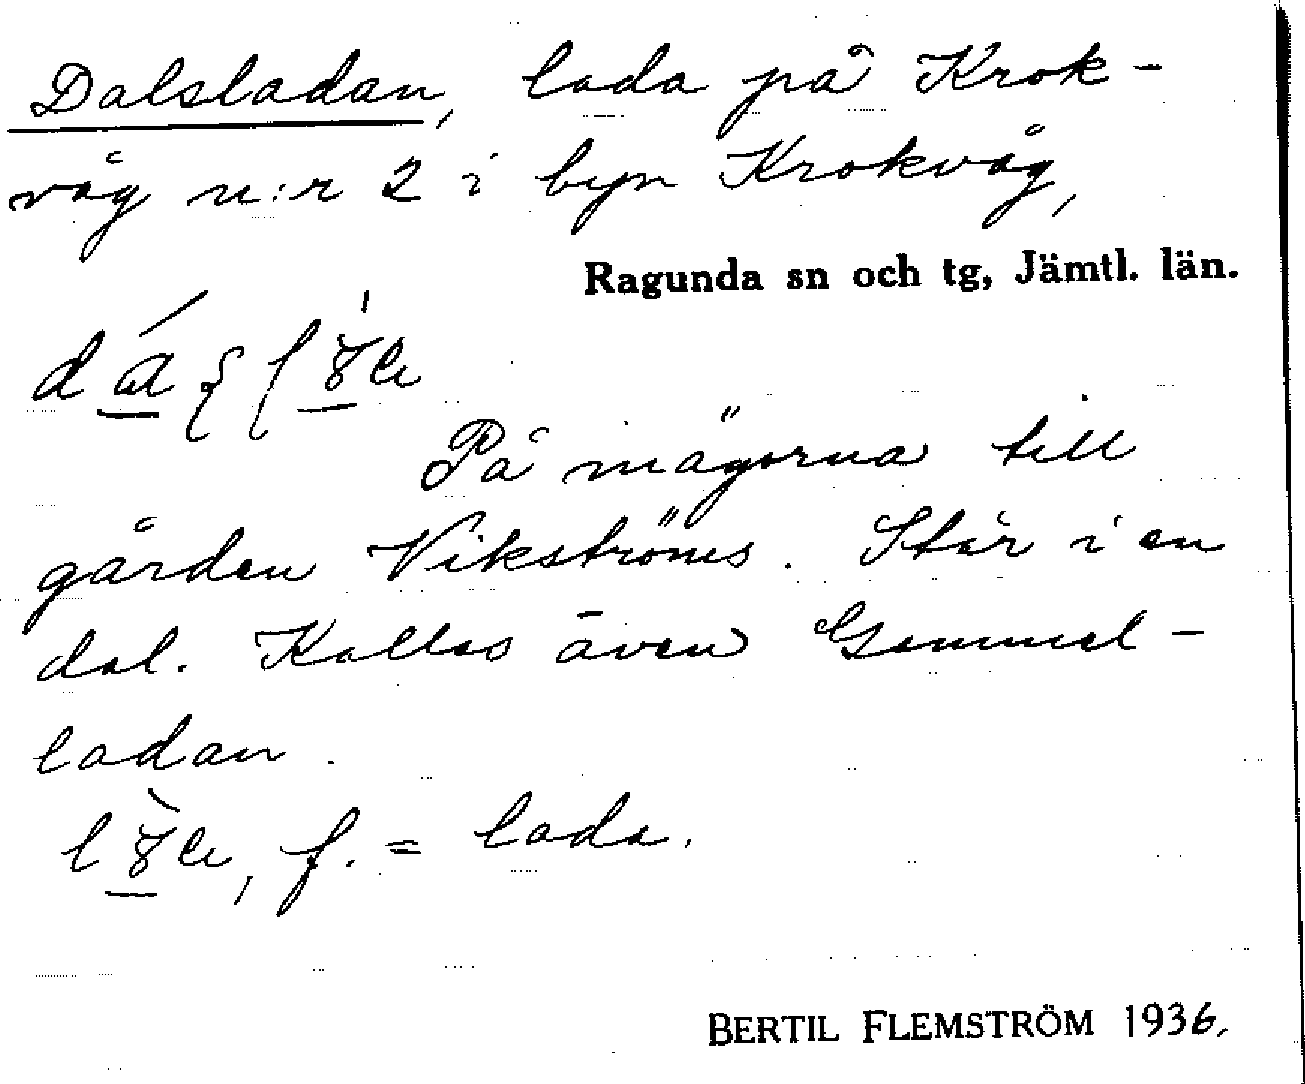 Dalsladan, lada på Krok-
våg n:r 2 i byn Krokvåg,
Ragunda sn och tg, Jämtl. län.
På mägorna till
gården Vikströms. Står i en
dal. Kallas även Gammel-
ladan.
f. = lada.
BERTIL FLEMSTRÖM 1936.